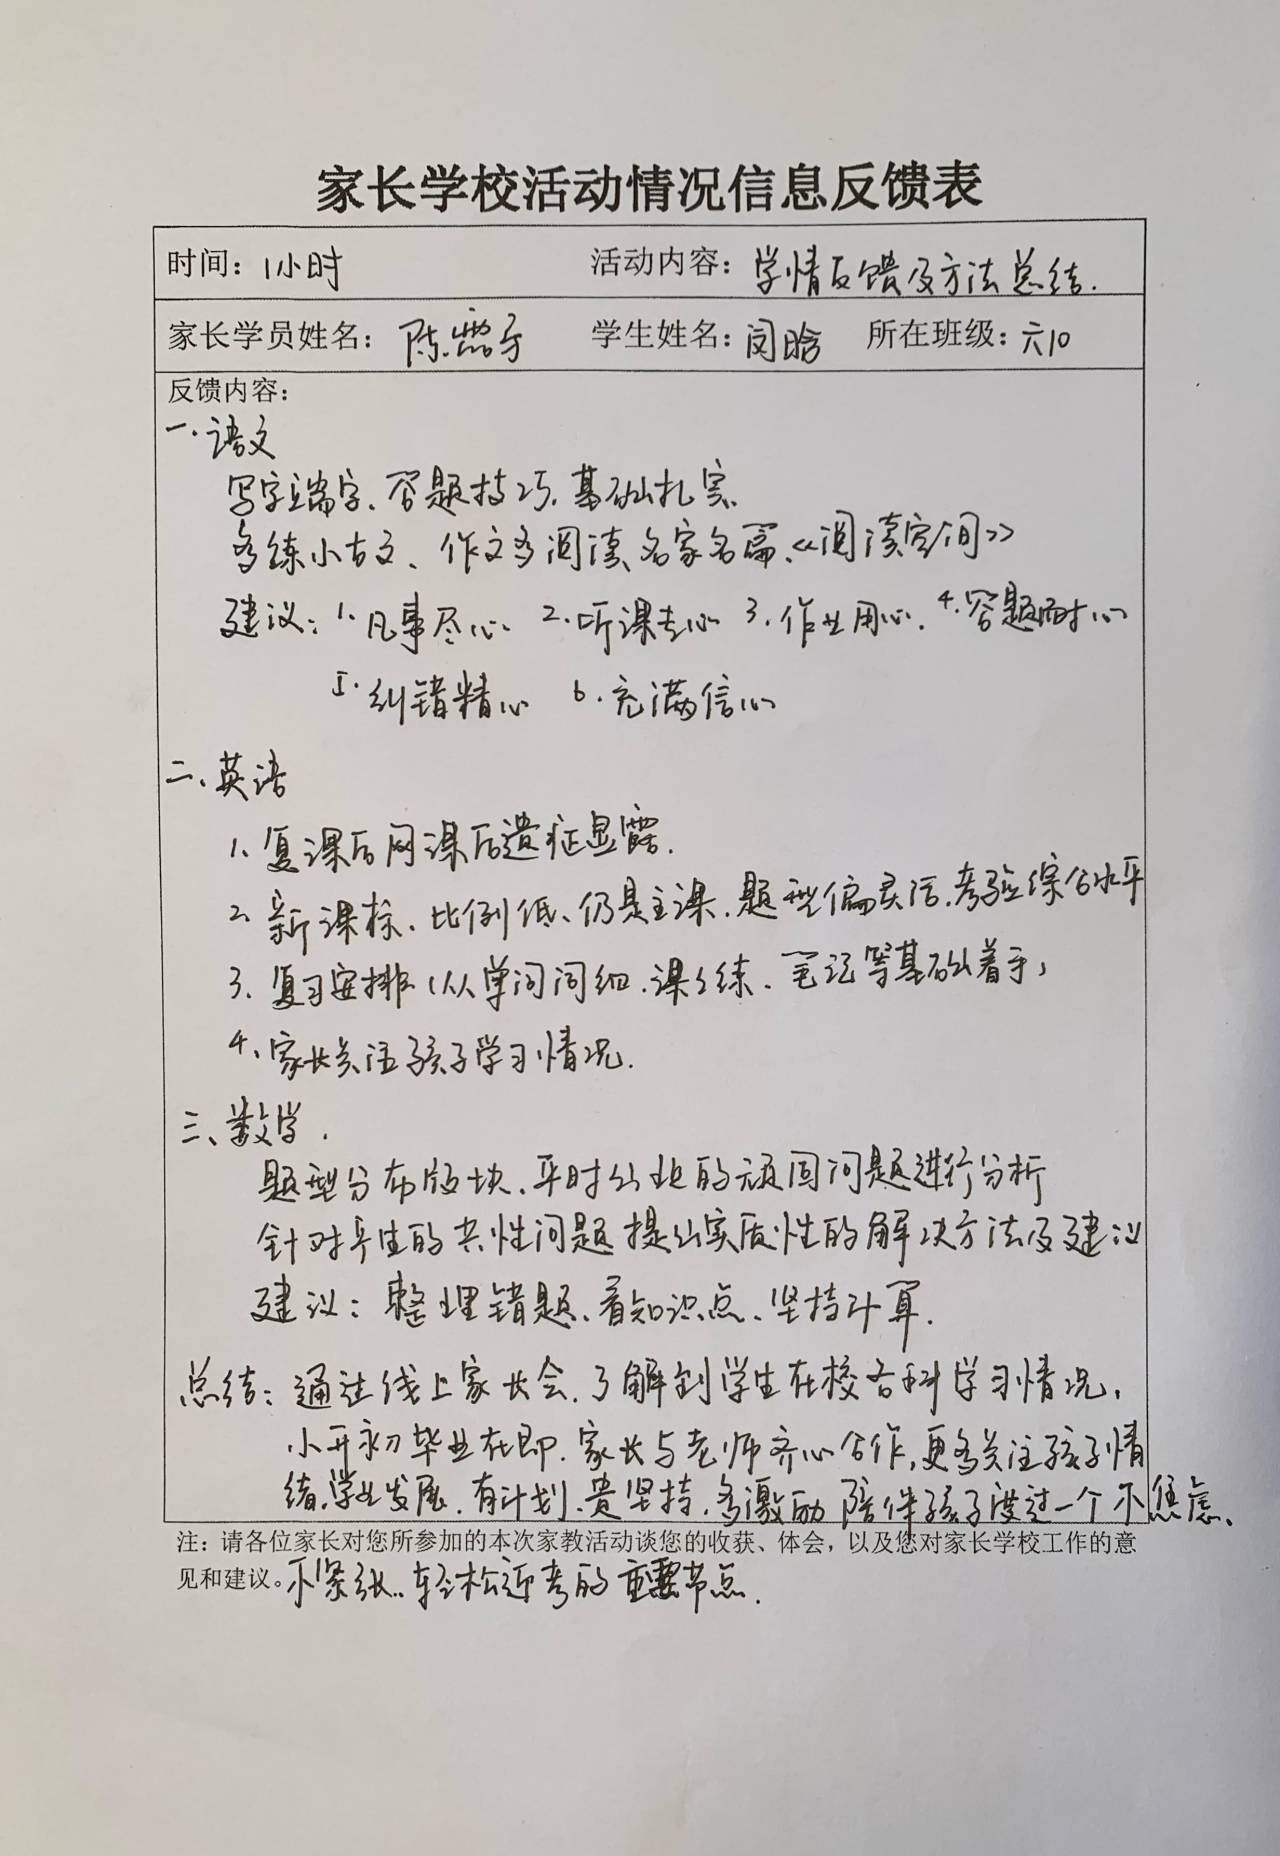 家长学校活动情况信息反馈表
时间：1小时 活动内容：学情反馈及方法总结.
家长学员姓名：陈 学生姓名：闵晗 所在班级：六10
反馈内容：
一.语文
写字端字、答题技巧、基础扎实.
多练小古文、作文多阅读、名家名篇、《阅读空间》
建议：1.凡事尽心. 2.听课专心 3.作业用心. 4.答题耐心
5.纠错精心 6.充满信心
二、英语
1、复课后网课后遗症显露.
2、新课标、比例低、仍是主课.题型偏灵活.考验综合水平
3、复习安排（从单词词组.课课练、笔记等基础着手）
4、家长关注孩子学习情况.
三、数学.
题型分布版块、平时作业的顽固问题进行分析
针对学生的共性问题提出实质性的解决方法及建议
建议：整理错题、看知识点、坚持计算.
总结：通过线上家长会.了解到学生在校各科学习情况，
小升初毕业在即.家长与老师齐心合作，更多关注孩子情
绪、学业发展.有计划、贵坚持.多激励 陪伴孩子度过一个不焦虑、
注：请各位家长对您所参加的本次家教活动谈您的收获、体会，以及您对家长学校工作的意
见和建议。不紧张..轻松迎考的重要节点.